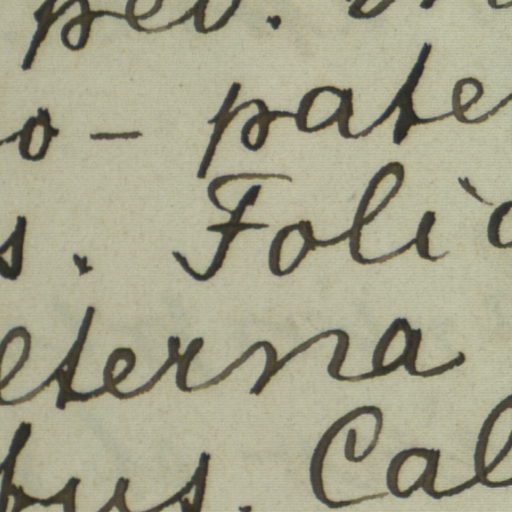 ped.
o - pate
s. Folio
eterna
bus. Cal